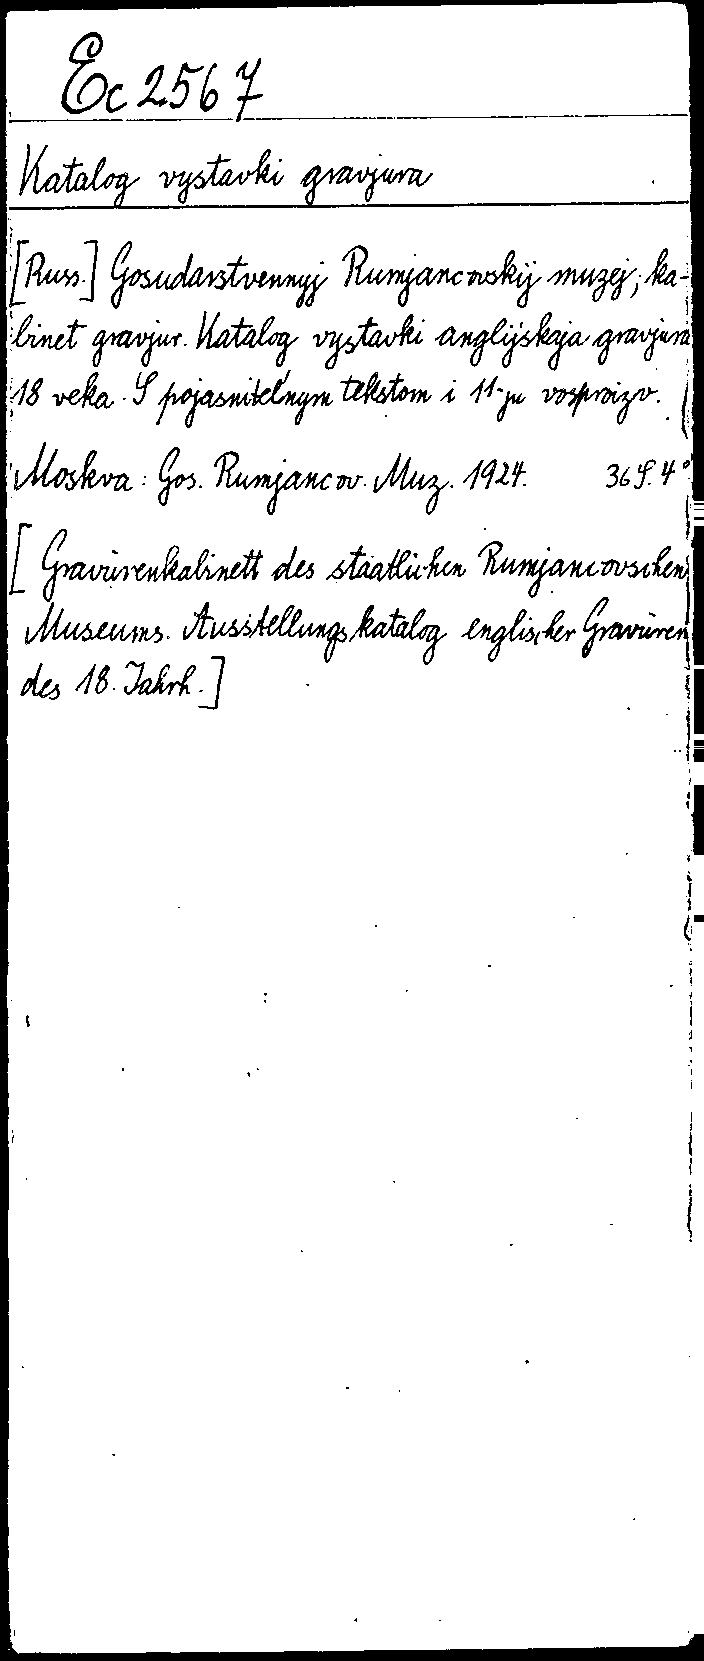 Ec 2567
Katalog vystavki gravjura
[Russ.] Gosudarstvennyj Rumjancovskij muzej, ka-
binet gravjur. Katalog vystavki anglijskaja gravjura
18 veka. S pojasnitel'nym tekstom i 11-ju vosproizv.
Moskva: Gos. Rumjancov. Muz. 1924. 36 S. 4°
[Gravürenkabinett des staatlichen Rumjancovschen
Museums. Ausstellungskatalog englischer Gravüren
des 18. Jahrh.]